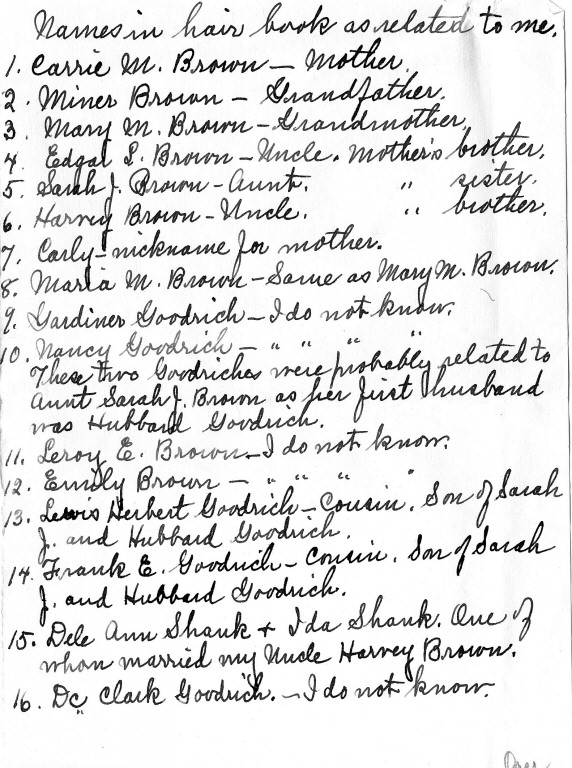 Names in hair book as related to me.
1. Carrie M. Brown – Mother.
2. Miner Brown – Grandfather.
3. Mary M. Brown – Grandmother.
4. Edgar L. Brown – Uncle. Mother's brother.
5. Sarah J. Brown – Aunt. " sister.
6. Harvey Brown – Uncle. " brother.
7. Carly – nickname for mother.
8. Maria M. Brown – Same as Mary M. Brown.
9. Gardiner Goodrich – I do not know.
10. Nancy Goodrich – " " " "
These two Goodriches were probably related to
Aunt Sarah J. Brown as her first husband
was Hubbard Goodrich.
11. Leroy E. Brown – I do not know.
12. Emily Brown – " " " "
13. Lewis Herbert Goodrich – Cousin. Son of Sarah
J. and Hubbard Goodrich.
14. Frank E. Goodrich – Cousin. Son of Sarah
J. and Hubbard Goodrich.
15. Dele Ann Shank + Ida Shank. One of
whon married my Uncle Harvey Brown.
16. Dc Clark Goodrich. – I do not know.
Over